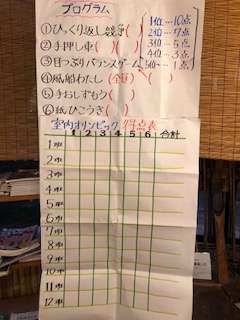 プログラム
①びっくり返し競争( )
②手押し車( )( )
③目つぶりバランスゲーム( )
④風船わたし(全員)( )
⑤手おしずもう( )
⑥紙ひこうき( )
1位…10点
2位…7点
3位…5点
4位…3点
5位…1点
室内オリンピック 得点表
1 2 3 4 5 6 合計
1班
2班
3班
4班
5班
6班
7班
8班
9班
10班
11班
12班